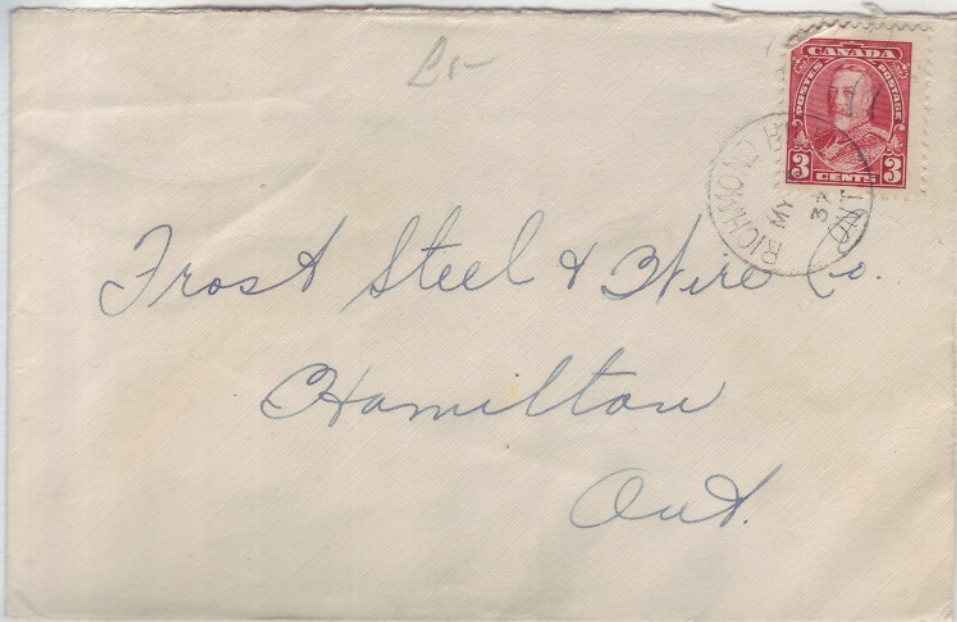 CANADA
POSTES POSTAGE
3 CENTS 3
RICHMOND
MY
37
ONT
Frost Steel & Wire Co.
Hamilton
Ont.